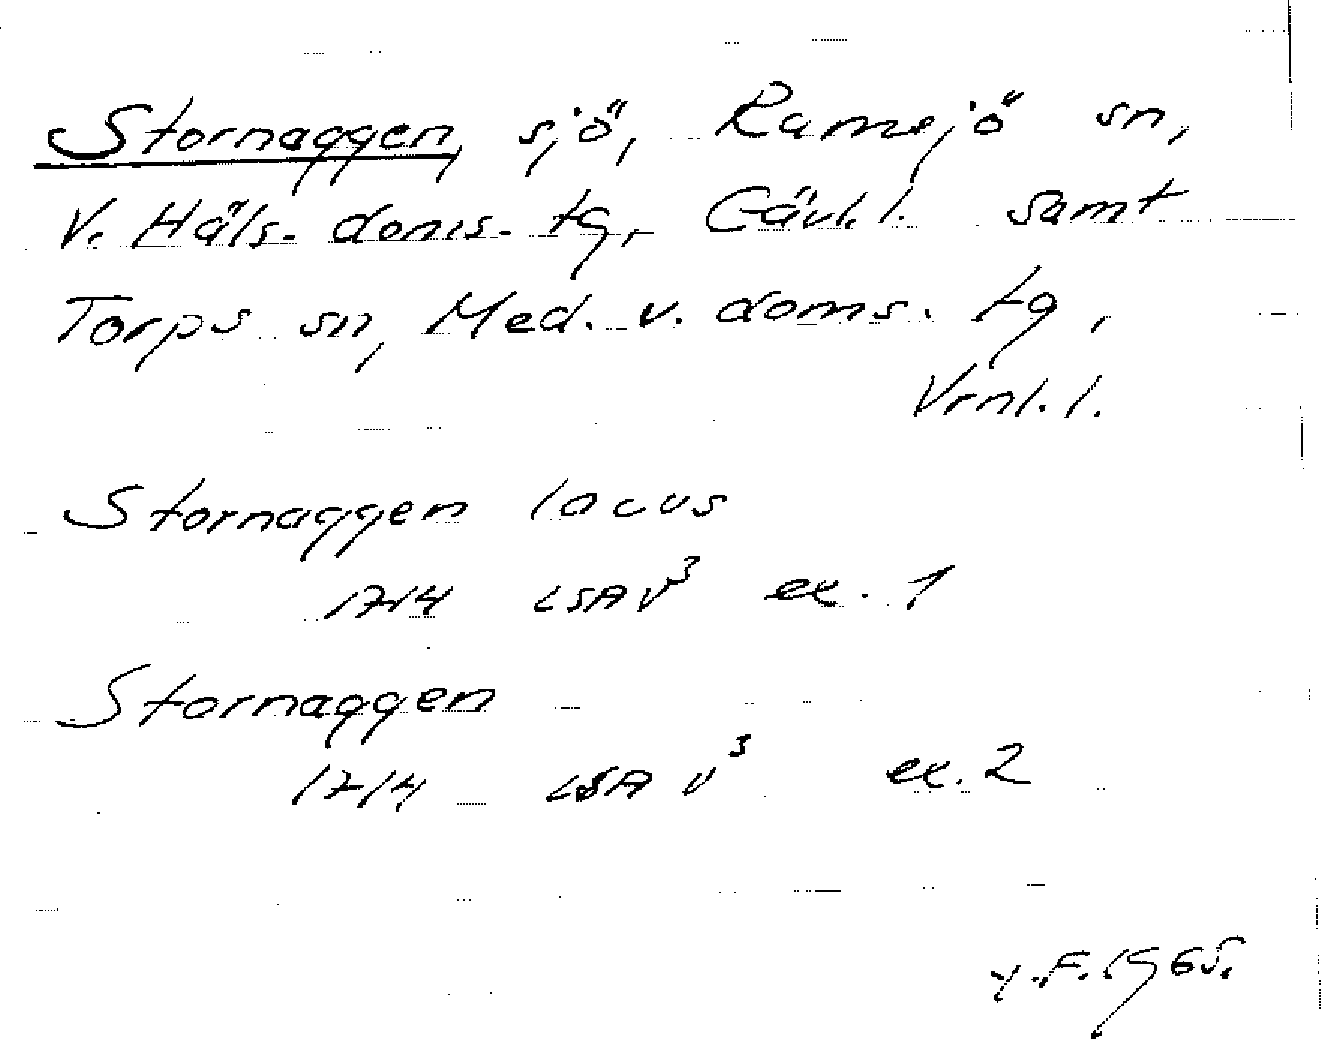 Stornaggen, sjö, Ramsjö sn,
V. Häls. doms. tg, Gävl. l. samt
Torps sn, Med. v. doms. tg,
Vrnl. l.
Stornaggen locus
1714 LSA V³ ex. 1
Stornaggen
1714 LSA V³ ex. 2
Y.F. 1965.